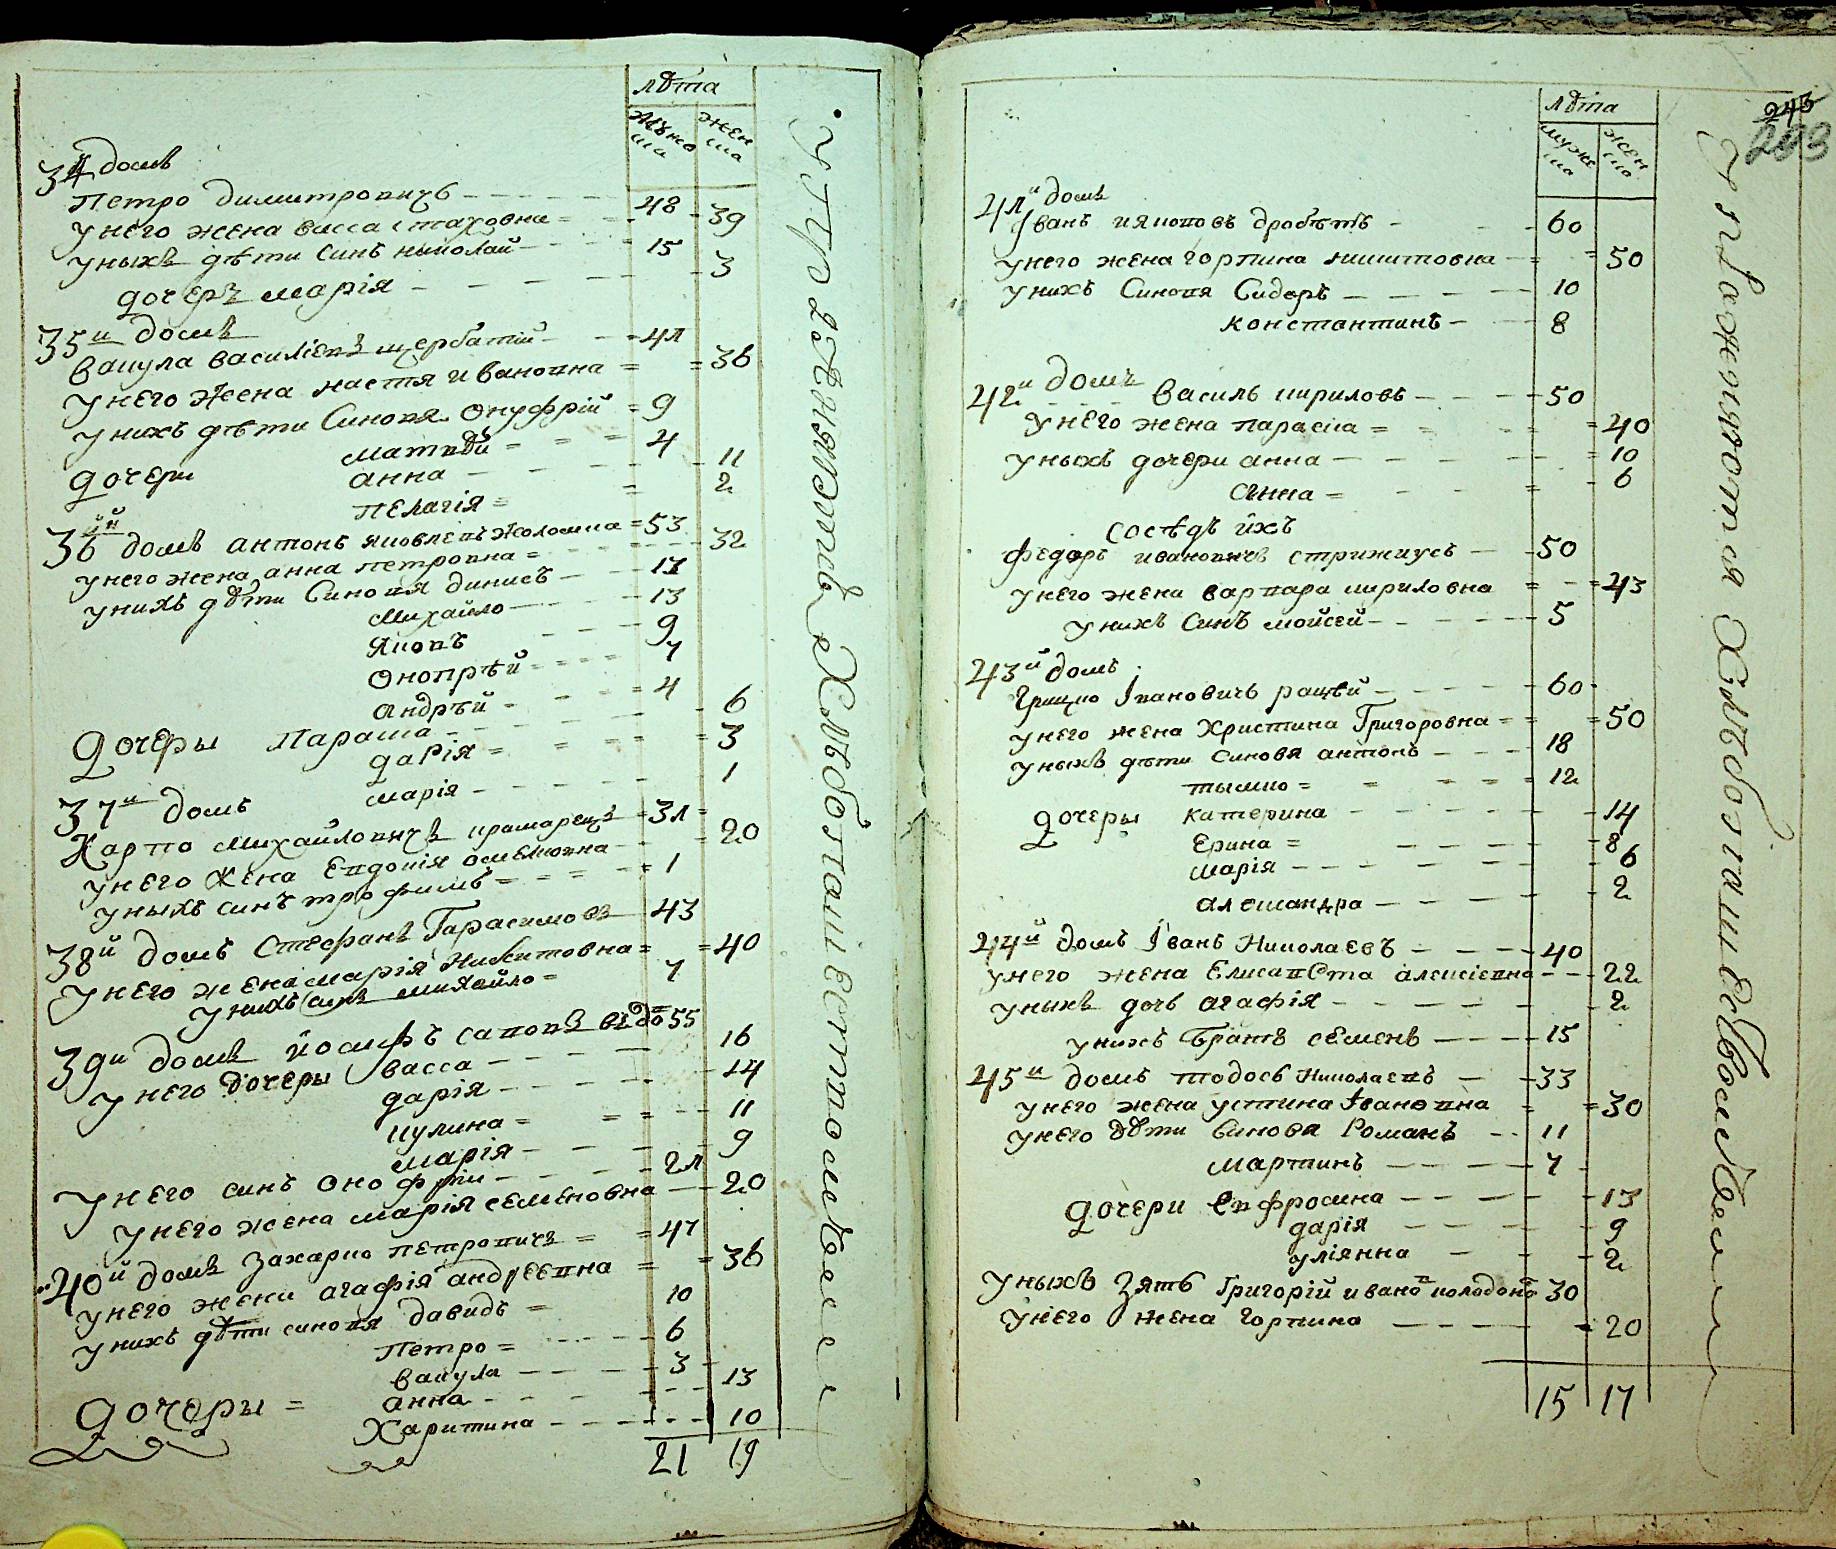 лѣта
мужеска женска
34 домъ
Петро димитровичъ 48
у него жена васса стаховна 39
у ныхъ дѣти синъ николай 15
дочеръ марія 3
35й домъ
вакула василіевъ щербатій 4л
у него жена настя ивановна 36
у нихъ дѣти Синовя Онуфрій 9
матвѣй 4
дочери анна 11
пелагія 2
36й домъ антонъ яковлевъ 53
у него жена анна петровна 32
у нихъ дѣти Синовя динисъ
михайло 13
яковъ 9
Онопрѣй 7
андрѣй 4
дочеры Параска 6
дарія 3
марія 1
37й домъ
Карпо михайловичъ 3л
у него жена Евдокія 20
у ныхъ синъ трофимъ 1
38й домъ Стефанъ Гарасимовъ 43
у него жена марія Никитовна 40
у нихъ синъ михайло 7
39й домъ йосифъ вдо 55
у него дочеры васса 16
дарія 14
кулина 11
марія 9
у него синъ онофрій 2л
у него жена марія семеновна 20
40й домъ захарко петровичъ 47
у него жена агафія андреевна 36
у нихъ дѣти синовя давидъ 10
Петро 6
вакула 3
дочеры анна 13
Харитина 10
21 19
243
203
лѣта
мужеска женска
4лй домъ
Іванъ яковъ дробѣтъ 60
у него жена горпина никитовна 50
у нихъ Синовя Сидоръ 10
константинъ 8
42й домъ василь кириловъ 50
у него жена параска 40
у ныхъ дочери анна 10
анна 6
сосѣдъ ихъ
федоръ ивановичъ стрижкусъ 50
у него жена варвара кириловна 43
у нихъ Синъ мойсей 5
43й домъ
грицко Івановичъ рацкѣй 60
у него жена Христина Григоровна 50
у ныхъ дѣти синовя антонъ 18
тымко 12
дочеры катерина 14
Ерина 8
марія 6
александра 2
44й домъ Іванъ Николаевъ 40
у него жена Елисавета алексіевна 22
у ныхъ дочь агафія 2
у нихъ братъ семенъ 15
45й домъ тодосъ Николаевъ 33
у него жена устина Івановна 30
у него дѣти Синовя Романъ 11
мартинъ 7
дочери Евфросина 13
дарія 9
уліянна 2
у ныхъ зять Григорій ивано 30
у него жена Горпина 20
15 17